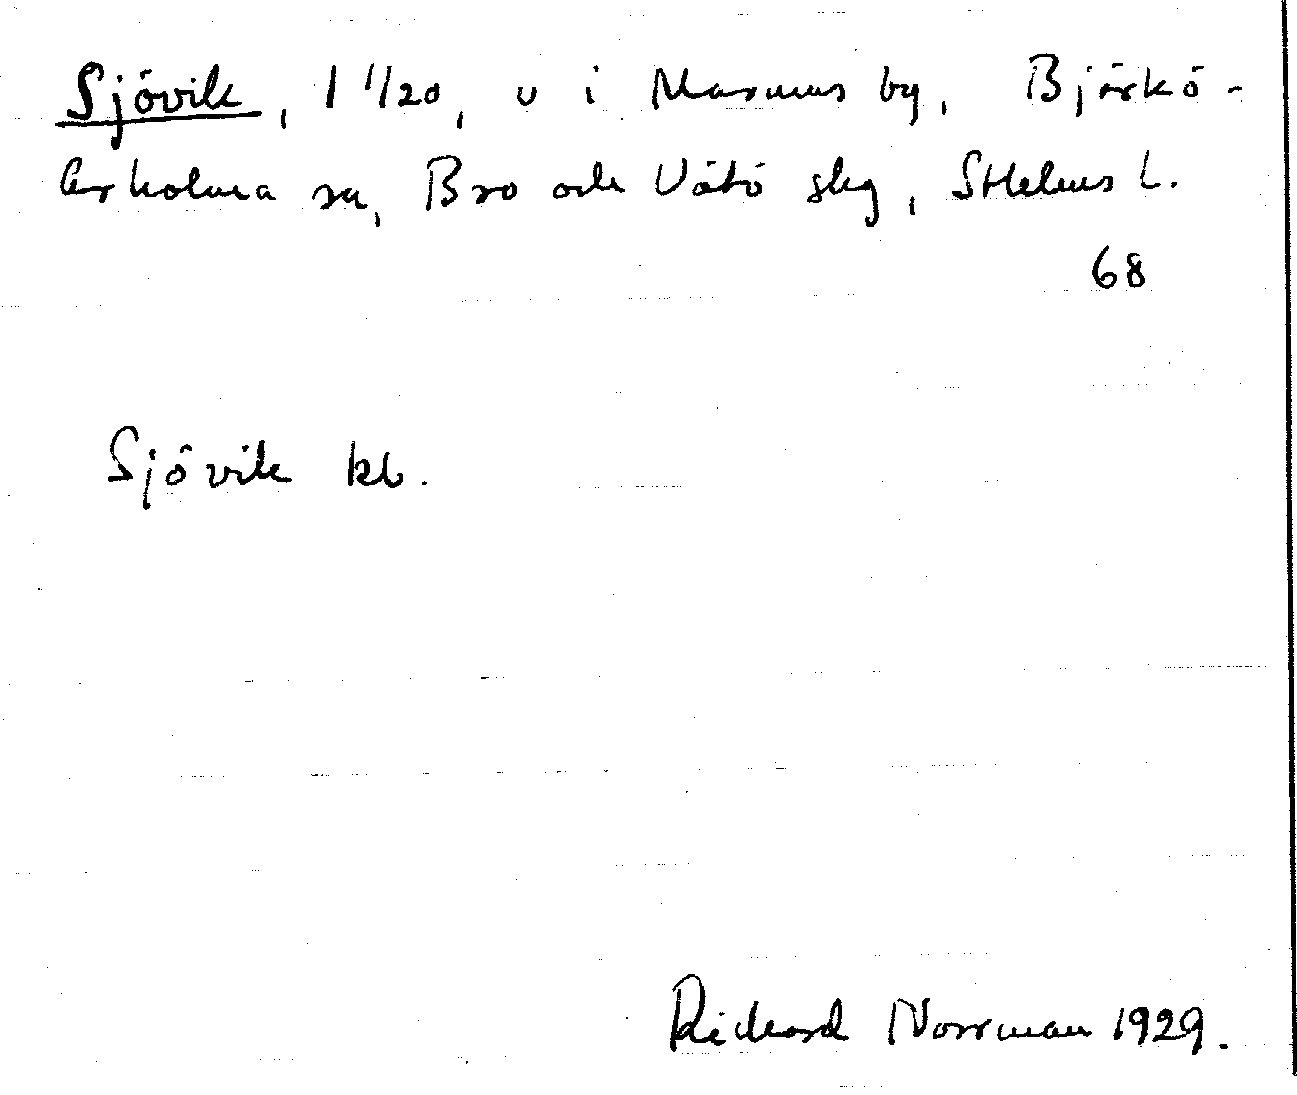 Sjövik, 1 11/20, u i Marums by, Björkö-
Arholma sn, Bro och Vätö skg, Sthlms L.
68
Sjövik kb.
Richard Norrman 1929.